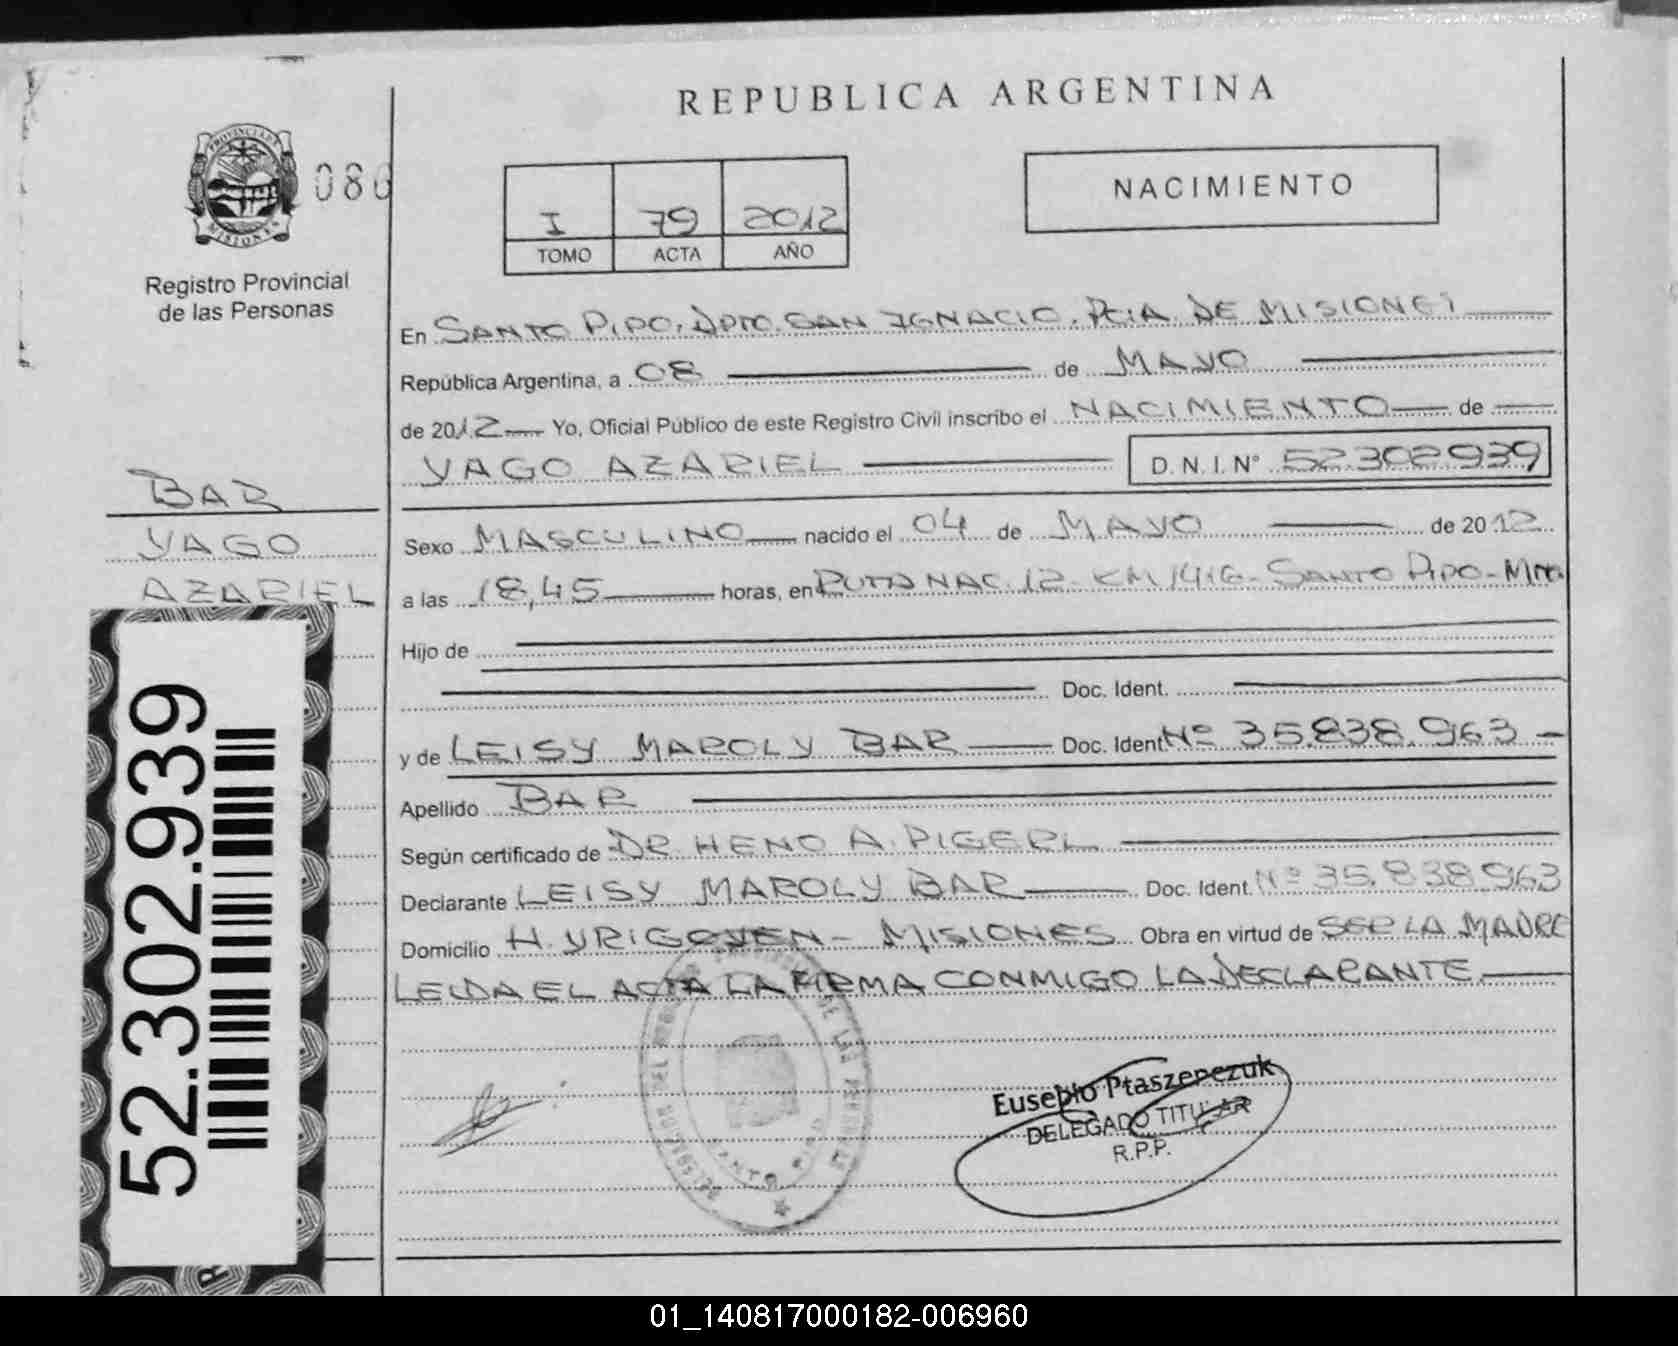 REPUBLICA ARGENTINA
PROVINCIA DE
MISIONES
080
Registro Provincial
de las Personas
I 79 2012
TOMO ACTA AÑO
NACIMIENTO
En SANTO PIPO, DPTO. SAN IGNACIO. PCIA DE MISIONES
República Argentina, a 08 de MAYO
de 2012 Yo, Oficial Público de este Registro Civil inscribo el NACIMIENTO de
YAGO AZARIEL D.N.I.Nº 52.302.939
BAR
YAGO
AZARIEL
Sexo MASCULINO nacido el 04 de MAYO de 2012
a las 18,45 horas, en RUTA NAC. 12 - KM 1416 - SANTO PIPO - MNES
Hijo de
Doc. Ident.
y de LEISY MAROLY BAR Doc. Ident Nº 35.838.963
Apellido BAR
Según certificado de DR. HENO A. PIGERL
Declarante LEISY MAROLY BAR Doc. Ident. Nº 35.838.963
Domicilio H. YRIGOYEN - MISIONES Obra en virtud de SER LA MADRE
LEIDA EL ACTA LA FIRMA CONMIGO LA DECLARANTE
52.302.939
DE LAS PERSONAS
SANTO PIPO
Eusebio Ptaszenczuk
DELEGADO TITULAR
R.P.P.
01_140817000182-006960